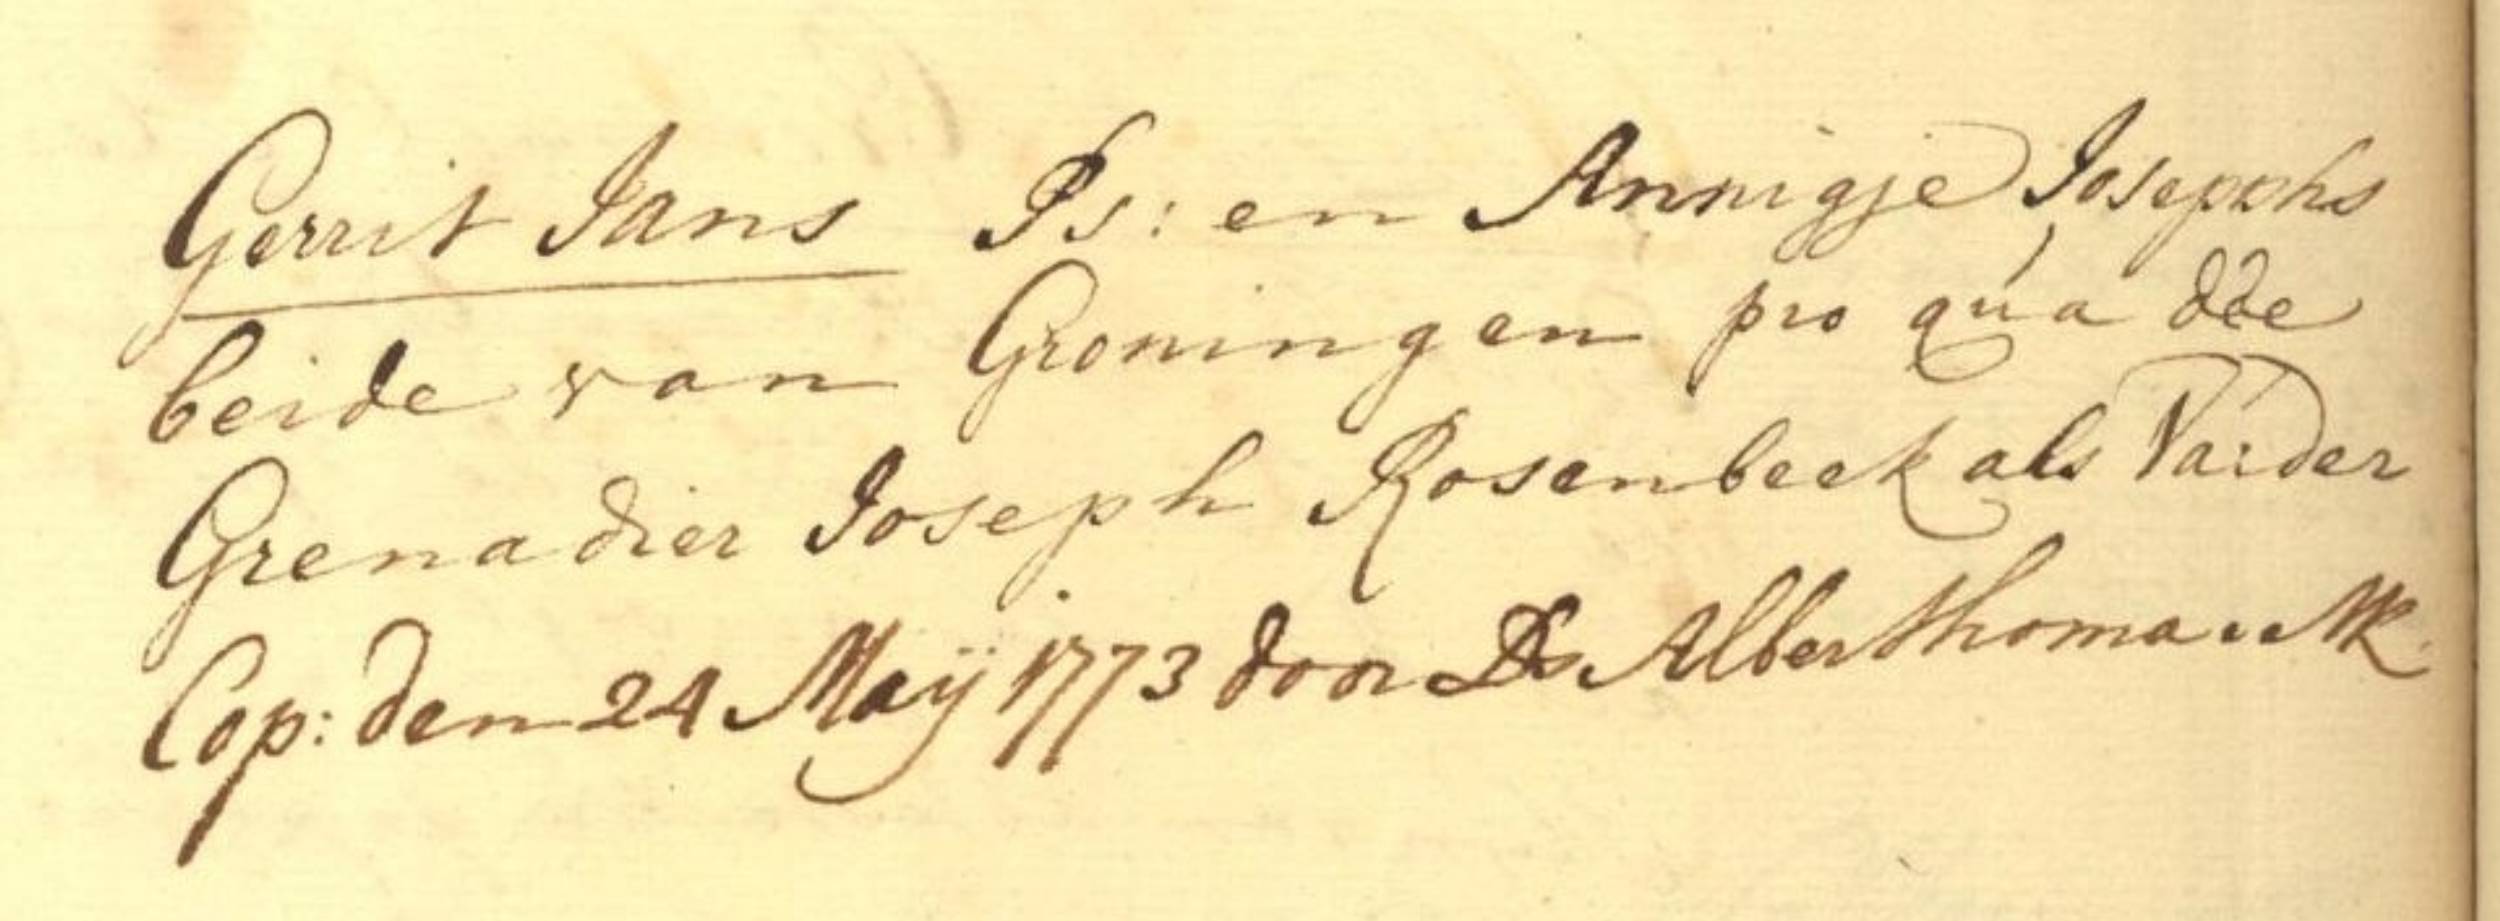 Gerrit Jans Ps: en Annigje Josephs
beide van Groningen pro qua dde
Grenadier Joseph Rosenbeek als Vaider
Cop: den 24 Maÿ 1773 door Ds Alberthoma